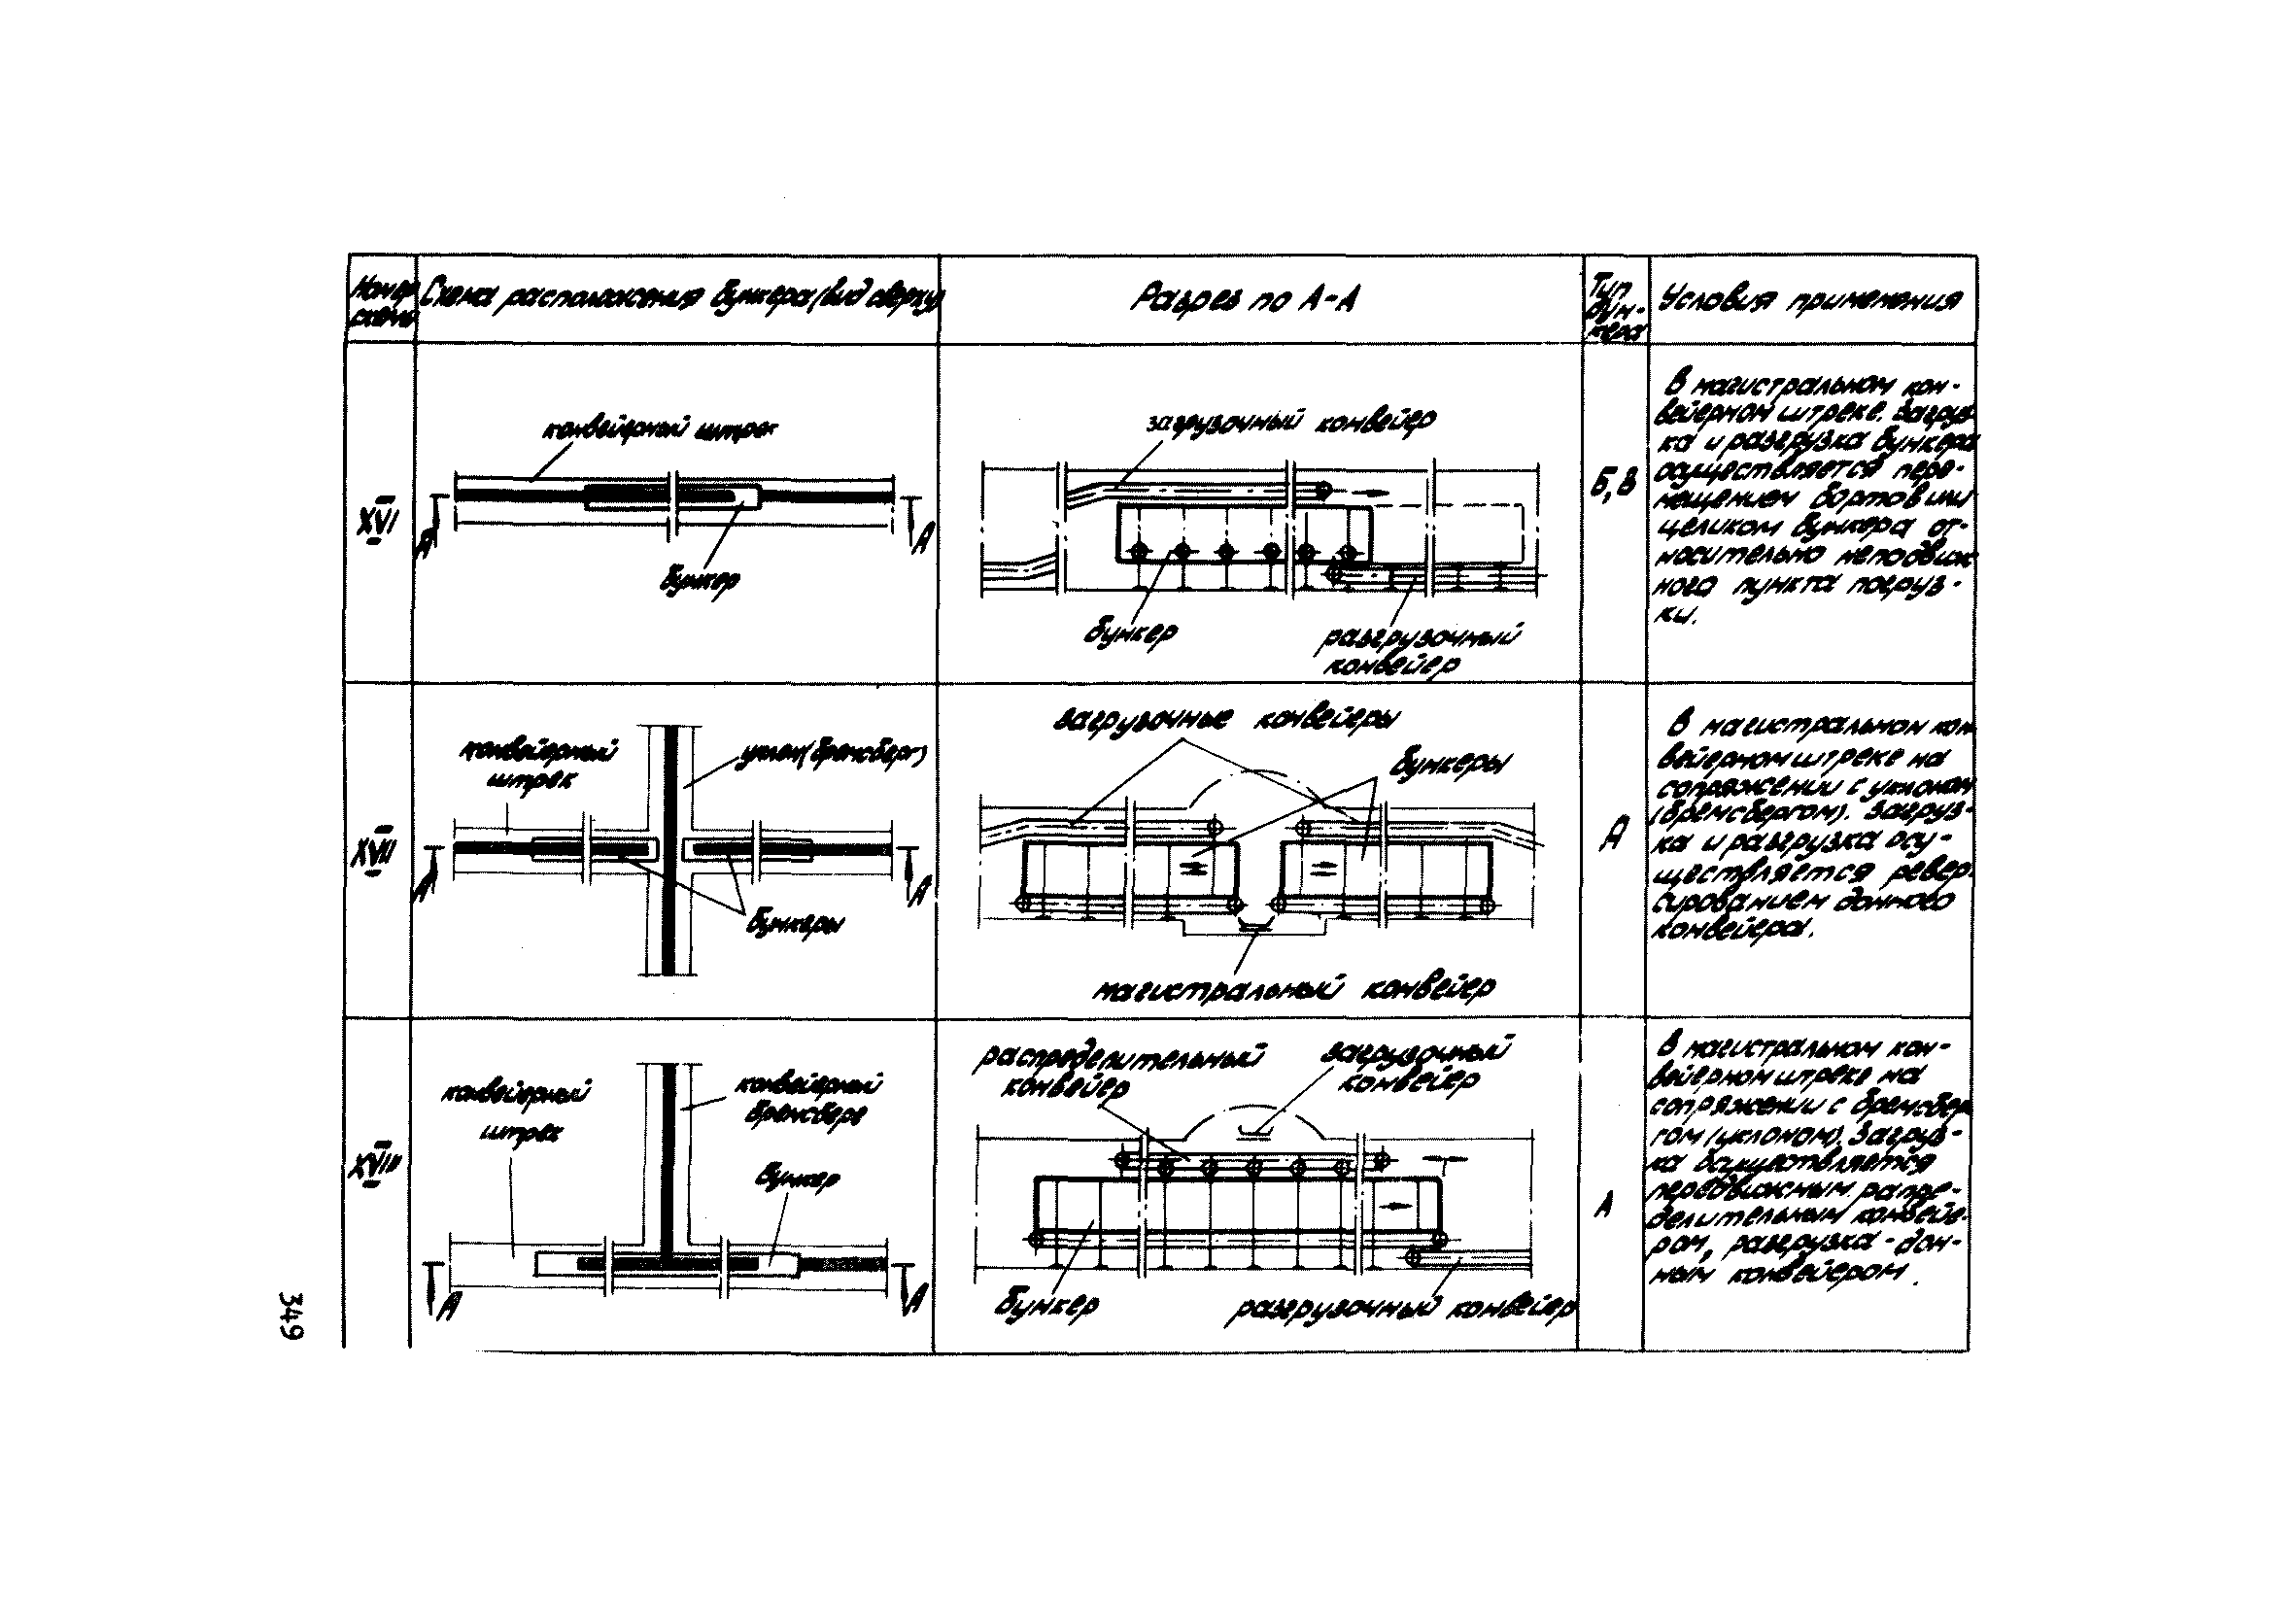 Номер
схемы
Схема расположения бункера (вид сверху)
Разрез по А-А
Тип
бун-
кера
Условия применения
XVI
конвейерный штрек
А
А
бункер
загрузочный конвейер
бункер
разгрузочный
конвейер
Б, В
В магистральном кон-
вейерном штреке. Загруз-
ка и разгрузка бункера
осуществляется пере-
мещением бортов или
целиком бункера от-
носительно неподвиж
ного пункта погруз-
ки.
XVII
конвейерный
штрек
уклон (бремсберг)
А
А
бункеры
загрузочные конвейеры
бункеры
магистральный конвейер
А
В магистральном кон
вейерном штреке на
сопряжении с уклоном
(бремсбергом). Загруз-
ка и разгрузка осу-
ществляется ревер
сированием донного
конвейера.
XVIII
конвейерный
штрек
конвейерный
бремсберг
бункер
А
А
распределительный
конвейер
загрузочный
конвейер
бункер
разгрузочный конвейер
А
В магистральном кон-
вейерном штреке на
сопряжении с бремсбер
гом (уклоном). Загруз-
ка осуществляется
передвижным рапре-
делительным конвейе-
ром, разгрузка - дон-
ным конвейером.
349